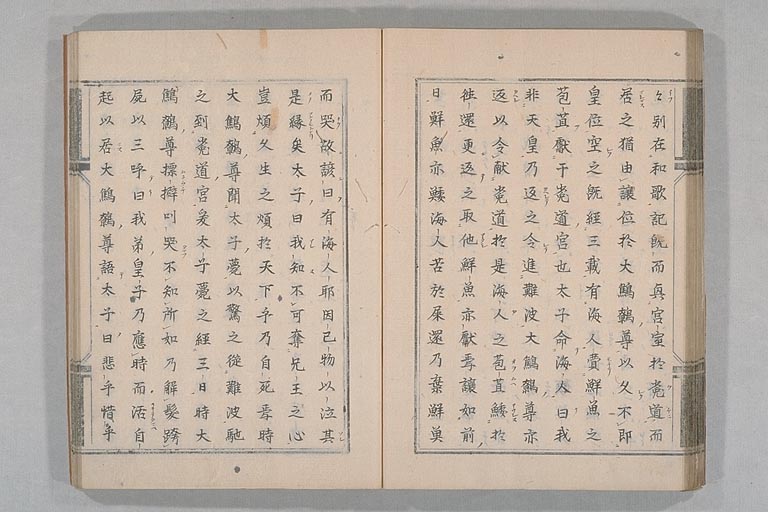 々別在和歌記既而興宮室於菟道而
居之猶由讓位於大鷦鷯尊以久不即
皇位空之既經三載有海人賫鮮魚之
苞苴獻于菟道宮也太子命海人曰我
非天皇乃返之令進難波大鷦鷯尊亦
返以令献菟道於是海人之苞苴鯘於
徃還更返之取他鮮魚亦獻焉讓如前
日鮮魚亦鯘海人苦於屎還乃棄鮮魚
而哭故諺曰有海人耶因己物以泣其
是縁矣太子曰我知不可奪兄王之心
豈煩久生之煩於天下乎乃自死焉時
大鷦鷯尊聞太子薨以驚之從難波馳
之到菟道宮爰太子薨之經三日時大
鷦鷯尊摽擗叫哭不知所如乃解髮跨
屍以三呼曰我弟皇子乃應時而活自
起以居大鷦鷯尊語太子曰悲乎惜乎